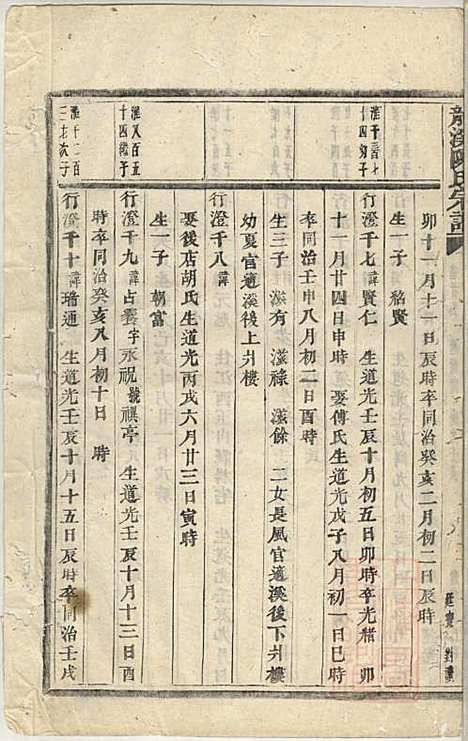 龍溪陳氏宗譜
卯十一月十一日辰時卒同治癸亥二月初二日辰時
生一子 紹賢
行澄千七諱賢仁 生道光壬辰十月初五日卯時卒光緒 卯
十一月廿四日申時 娶傅氏生道光戊子八月初一日巳時
卒同治壬申八月初二日酉時
生三子 滋有 滋祿 滋餘 二女長鳳官適溪後下井樓
幼夏官適溪後上井樓
行澄千八諱
娶後店胡氏生道光丙戌六月廿三日寅時
生一子 朝富
行澄千九諱占鰲字永祝號祺亭 生道光壬辰十月十三日酉
時卒同治癸亥八月初十日 時
行澄千十諱瑨通 生道光壬辰十月十五日辰時卒同治壬戌